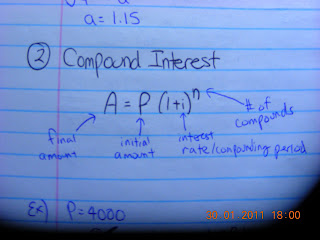 a = 1.15
② Compound Interest
A = P (1+i)ⁿ
# of
compounds
final
amount
initial
amount
interest
rate/compounding period
Ex) P=4000
30 01 2011 18:00